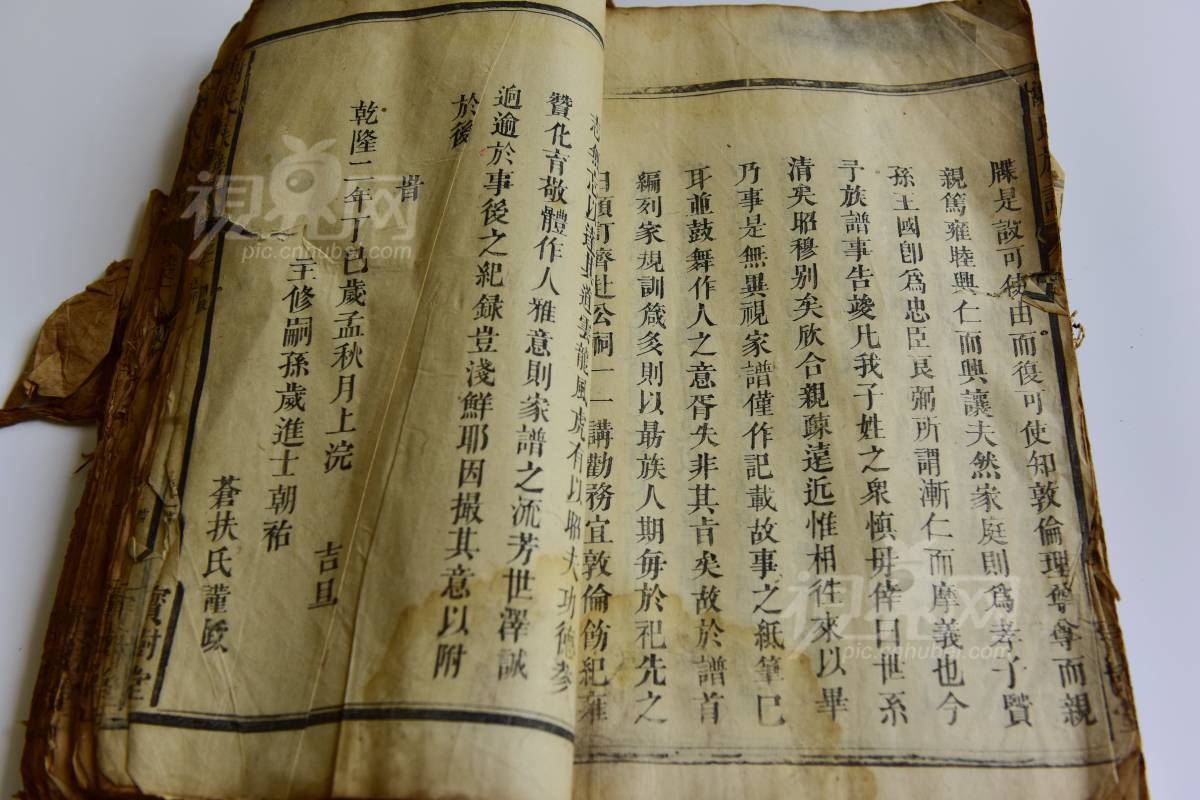 牒是設可使由而復可使知敦倫理尊尊而親
親篤雍睦興仁而興讓夫然家庭則為孝子賢
孫王國卽為忠臣良弼所謂漸仁而摩義也今
子族譜事告竣凡我子姓之衆慎毋倖曰世系
清矣昭穆别矣欣合親踈遠近惟相徃來以畢
乃事是無異視家譜僅作記載故事之紙筆已
耳並鼓舞作人之意胥失非其旨矣故於譜首
編列家規訓箴爻則以朂族人期毎於祀先之
日頭訂齊赴公祠一一講勸務宜敦倫飭紀雍
龍風虎有以耶夫功德參
贊化育敬體作人雅意則家譜之流芳世澤誠
逈逾於事後之紀録豈淺鮮耶因撮其意以附
於後
旹
乾隆二年丁巳歲孟秋月上浣 吉旦
主修嗣孫歲進士朝祐
蒼扶氏謹跋
寶樹堂
視界网
pic.cnhubei.com
視界网
pic.cnhubei.com